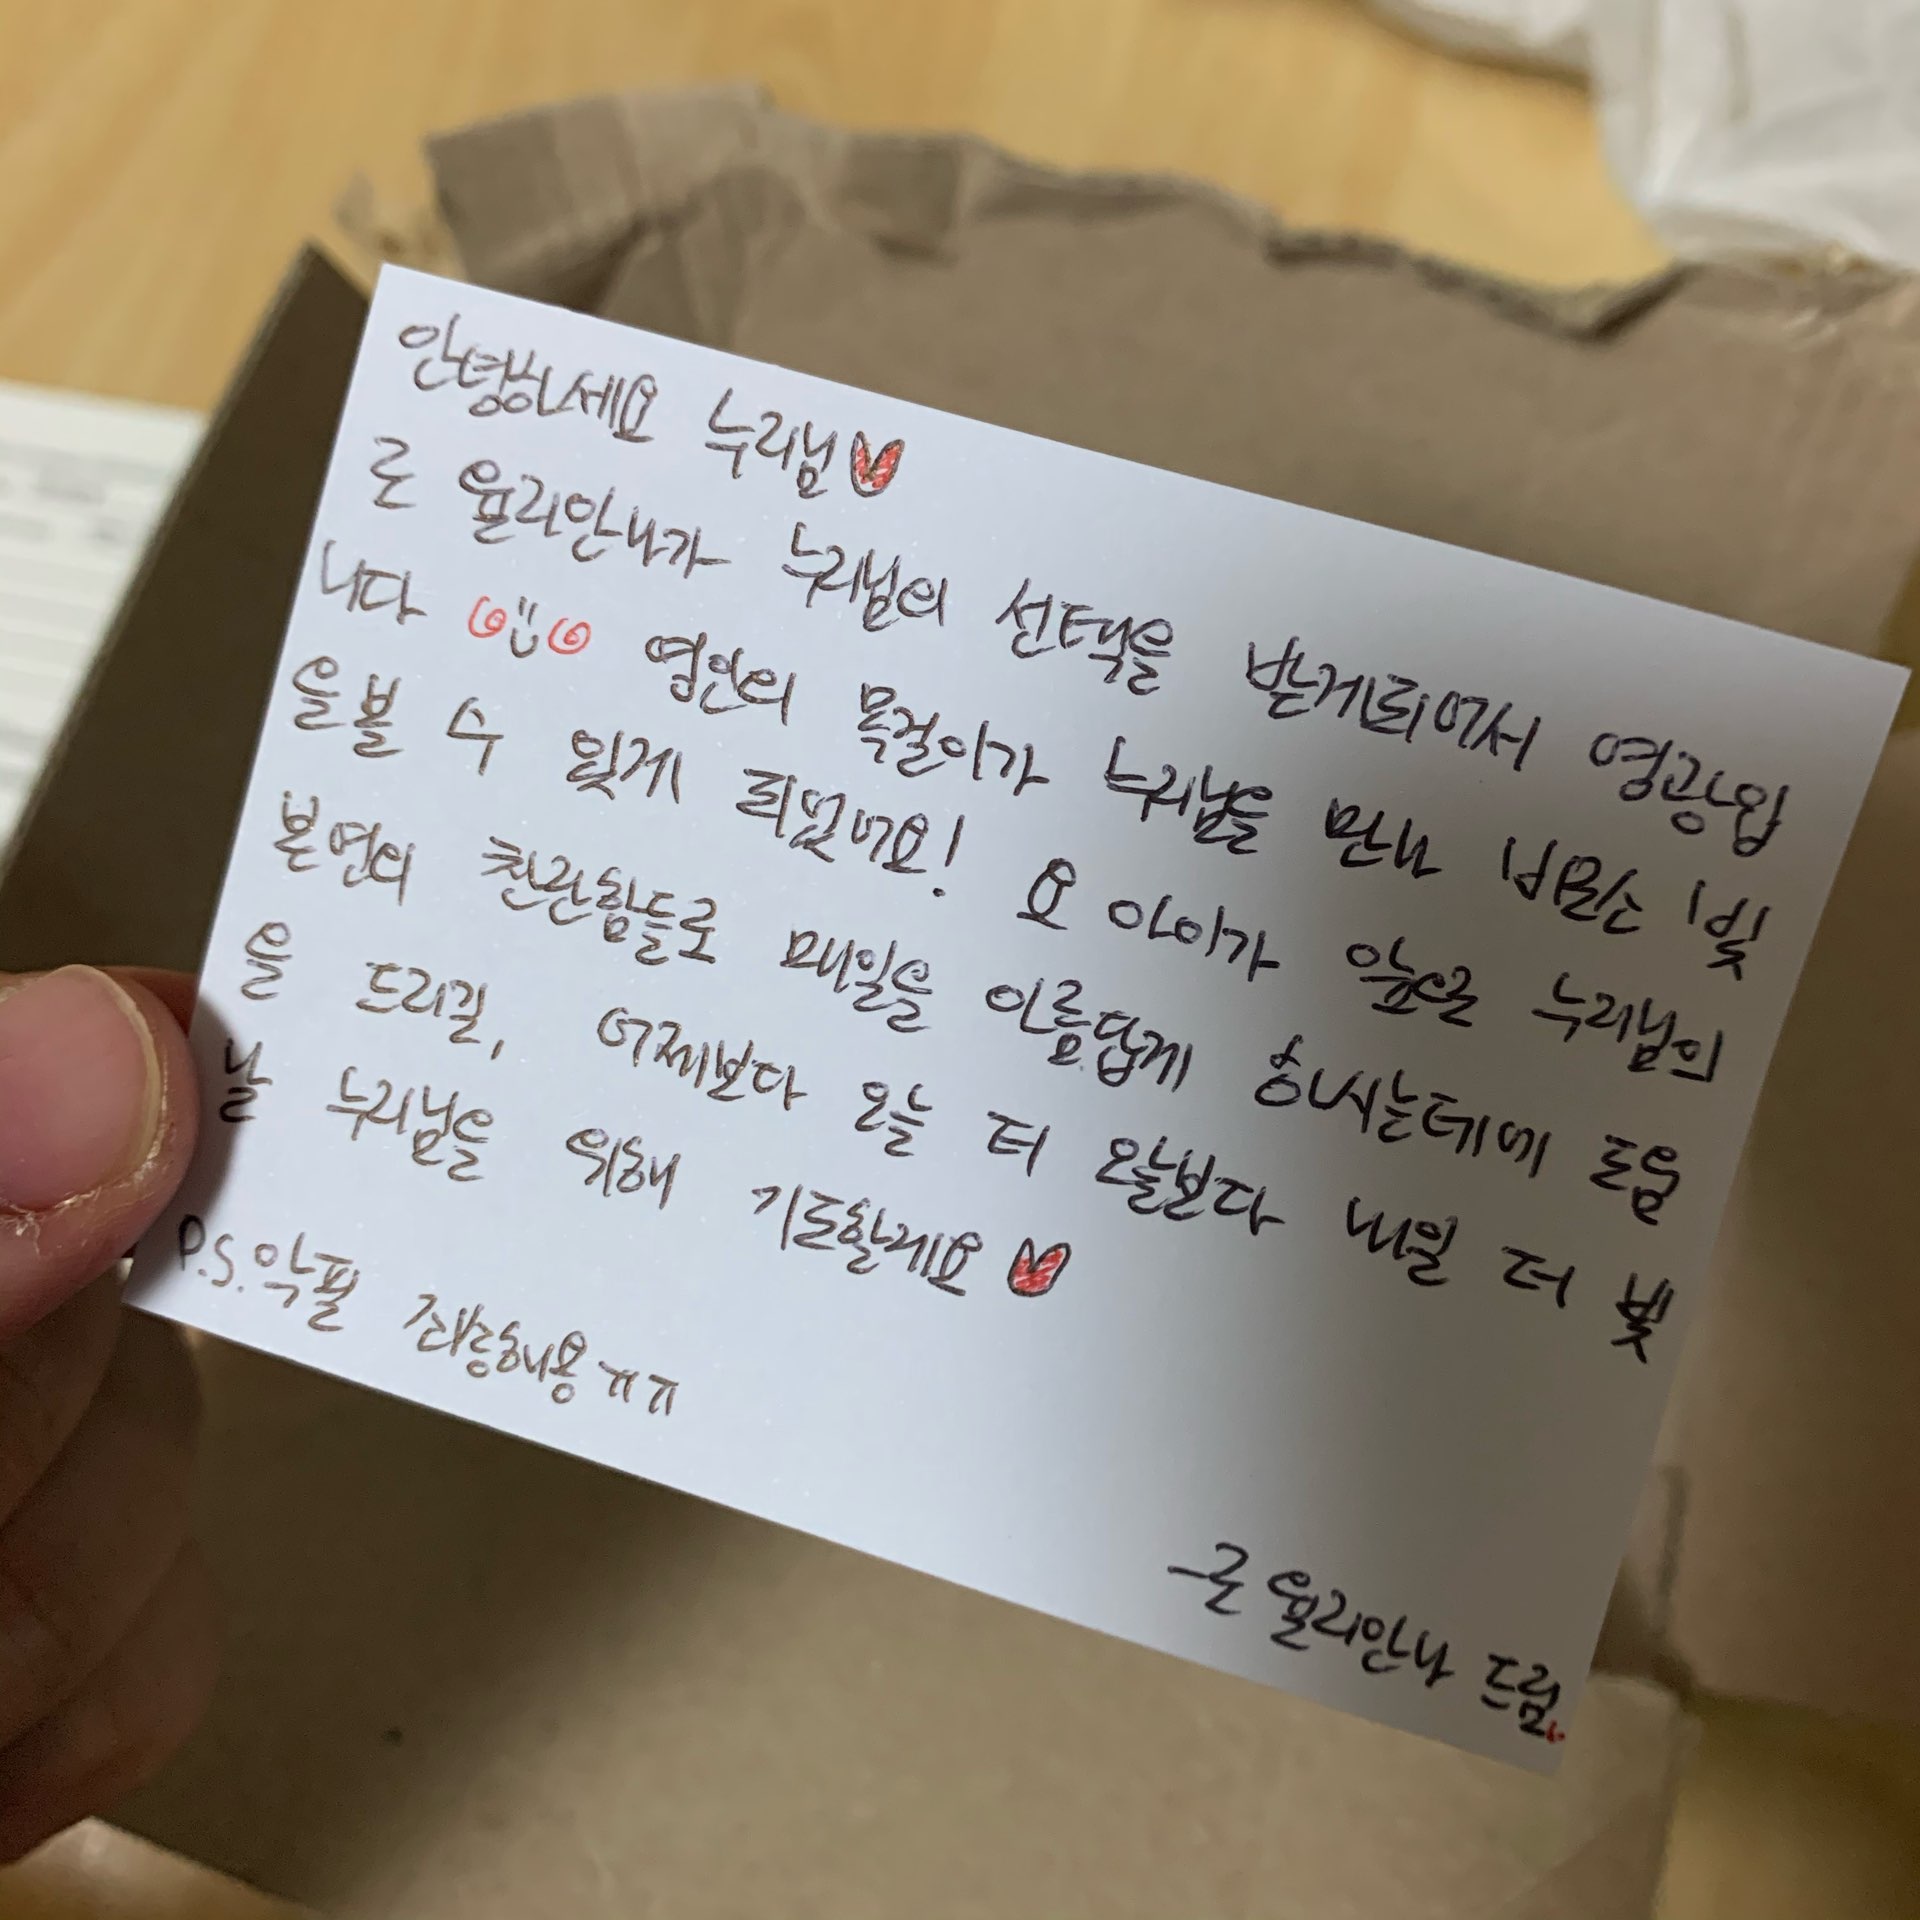 안녕하세요 누리님♥
른 율리안나가 누리님의 선택을 받게되어서 영광입
니다 염안의 목걸이가 누리님을 만나 비로소 빛
을볼 수 있게 되었어요! 요 아이가 앞으로 누리님의
본연의 찬란함들로 매일을 아름답게 하시는데에 도움
을 드리길, 어제보다 오늘 더 오늘보다 내일 더 빛
날 누리님을 위해 기도할게요♥
P.S. 악필 죄송해용ㅠㅠ
-른 율리안나 드림.